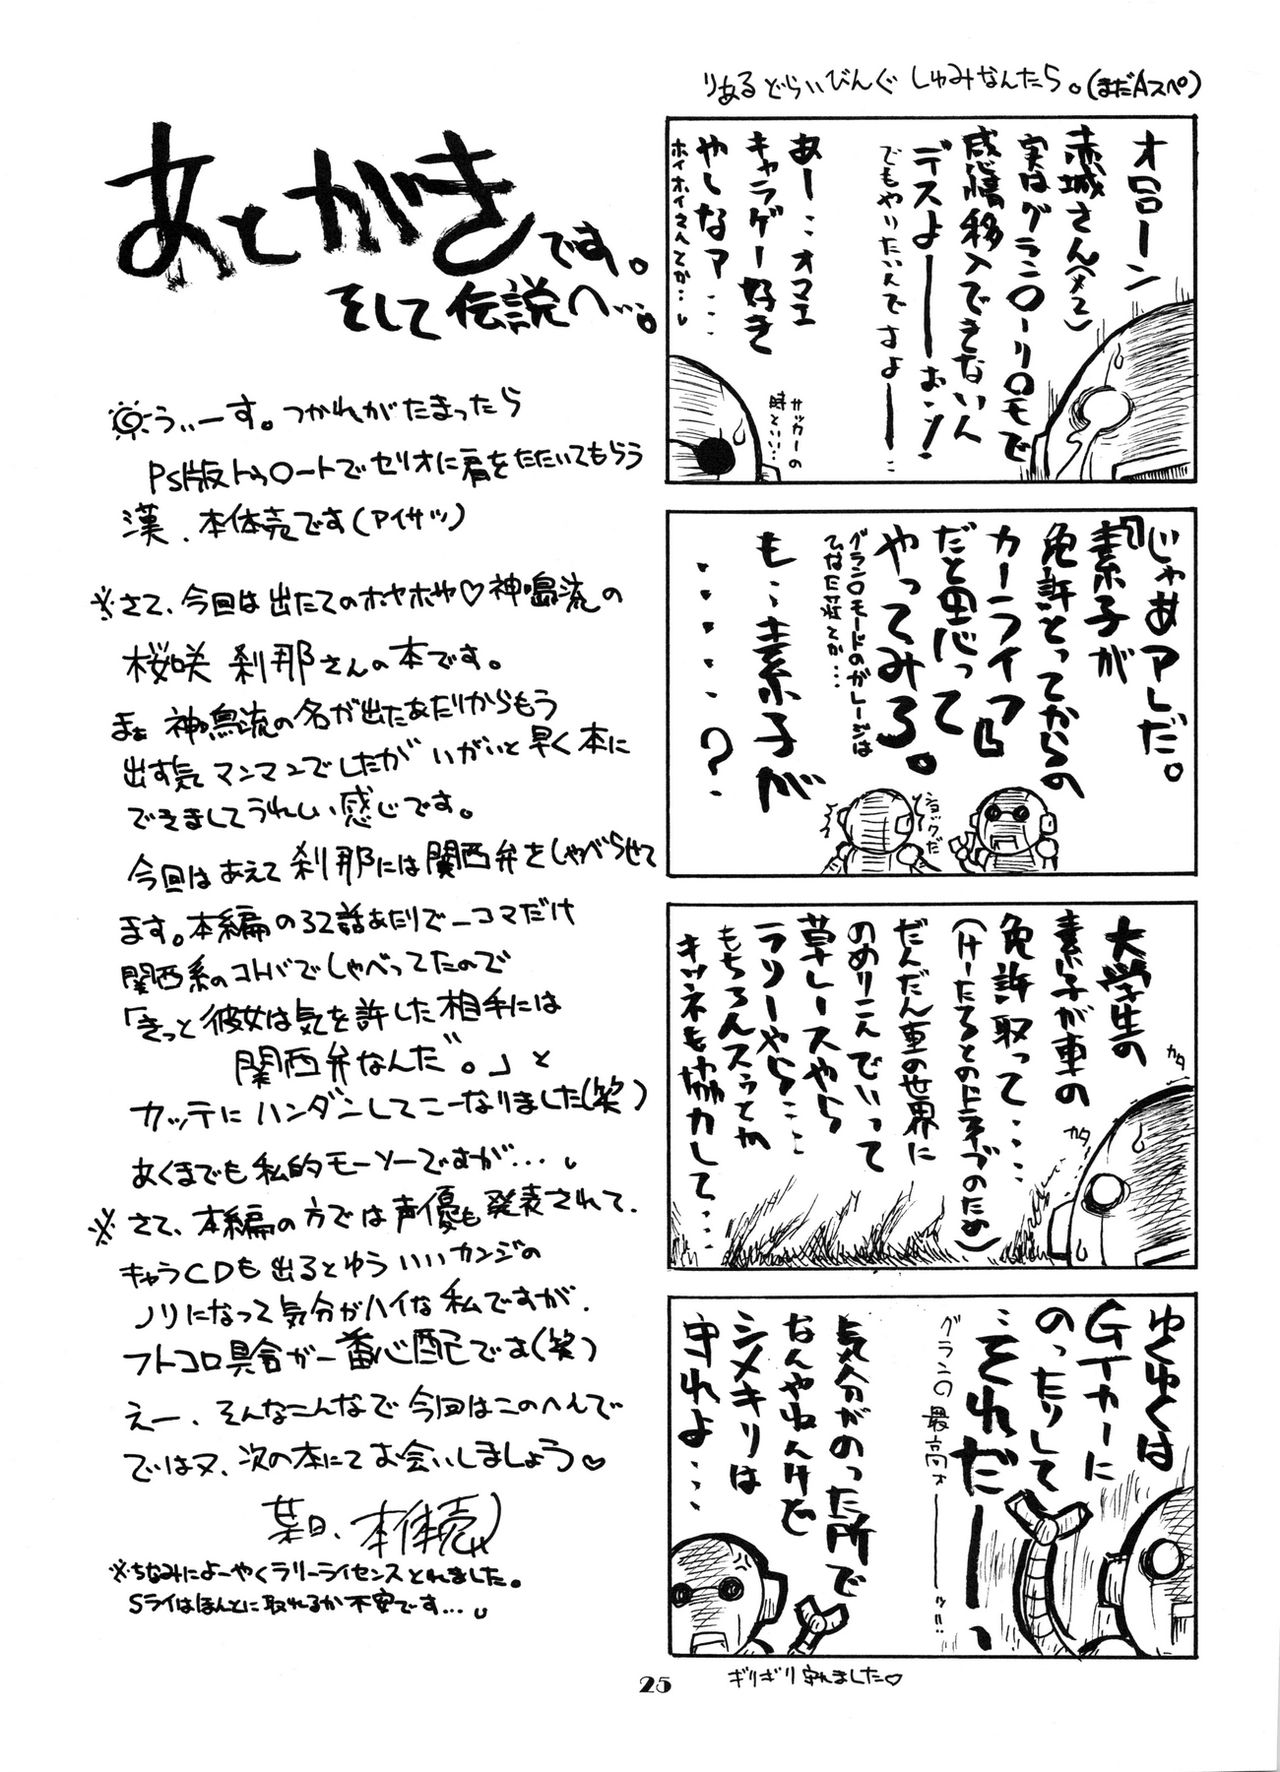 りあるどらいびんぐ しゅみなんたら。(まだAスペ)
オローン
赤城さん(メコ)
実はグラン○ーリ○モで
感情移入できないん
デスよーーおン!
でもやりたいんですよーー…
あー…オマエ
キャラゲー好き
やしなァ…
ホイホイさんとか…
サッカーの
時といい…
じゃあアレだ。
『素子が
免許とってからの
カーライフ』
だと思って
やってみろ。
グラン○モードのガレージは
ひなた荘とか…
も…素子が
・・・・?
ショックだ
大学生の
素子が車の
免許取って・・・・
(けーたろとのドライブのため)
だんだん車の世界に
のめりこんでいって
草レースやら
ラリーやら…
もちろんスゥとか
キツネも協力して…
カタ
カタ
ゆくゆくは
GTカーに
のったりして
…それだーーっ
グランの最高ォーーッ!!
気分がのった所で
なんやねんけど
シメキリは
守れよ…
ギリギリ守れました♡
あとがきです。
そして伝説へ…。
うぃーす。つかれがたまったら
PS版トゥ○ートでセリオに肩をたたいてもらう
漢、本体売です(アイサツ)
※さて、今回は出たてのホヤホヤ♡神鳴流の
桜咲 刹那さんの本です。
まぁ 神鳴流の名が出たあたりからもう
出す気マンマンでしたが いがいと早く本に
できましてうれしい感じです。
今回はあえて刹那には関西弁をしゃべらせて
ます。本編の32話あたりで一コマだけ
関西系のコトバでしゃべってたので
「きっと彼女は気を許した相手には
関西弁なんだ。」と
カッテにハンダンしてこーなりました(笑)
あくまでも私的モーソーですが…
※さて、本編の方では声優も発表されて、
キャラCDも出るとゆういいカンジの
ノリになって気分がハイな私ですが、
フトコロ具合が一番心配です(笑)
えー、そんなこんなで今回はこのへんで
ではまた、次の本にてお会いしましょう♡
某日、本体売
※ちなみによーやくラリーライセンスとれました。
Sライはほんとに取れるか不安です…
25